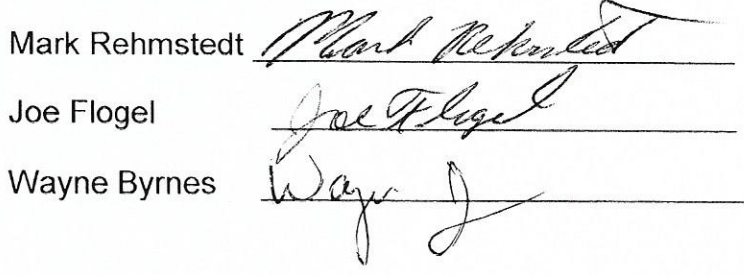 Mark Rehmstedt Mark Rehmstedt
Joe Flogel Joe Flogel
Wayne Byrnes Wayne